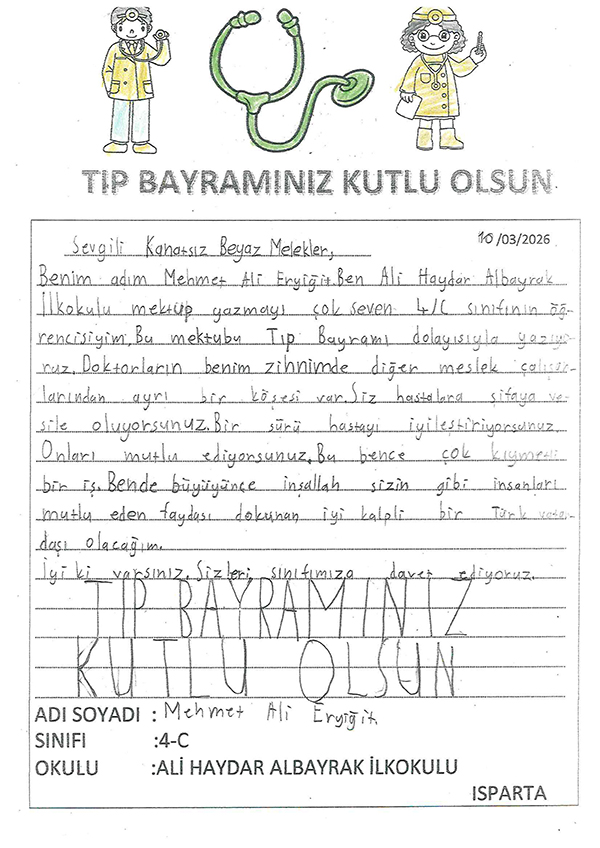 TIP BAYRAMINIZ KUTLU OLSUN
10/03/2026
Sevgili Kanatsız Beyaz Melekler,
Benim adım Mehmet Ali Eryiğit. Ben Ali Haydar Albayrak
İlkokulu mektup yazmayı çok seven 4/C sınıfının öğ-
rencisiyim. Bu mektubu Tıp Bayramı dolayısıyla yazıyo-
ruz. Doktorların benim zihnimde diğer meslek çalışan-
larından ayrı bir köşesi var. Siz hastalara şifaya ve-
sile oluyorsunuz. Bir sürü hastayı iyileştiriyorsunuz.
Onları mutlu ediyorsunuz. Bu bence çok kıymetli
bir iş. Bende büyüyünce inşallah sizin gibi insanları
mutlu eden faydası dokunan iyi kalpli bir Türk vatan-
daşı olacağım.
İyi ki varsınız. Sizleri sınıfımıza davet ediyoruz.
TIP BAYRAMINIZ
KUTLU OLSUN
ADI SOYADI : Mehmet Ali Eryiğit
SINIFI :4-C
OKULU :ALİ HAYDAR ALBAYRAK İLKOKULU
ISPARTA